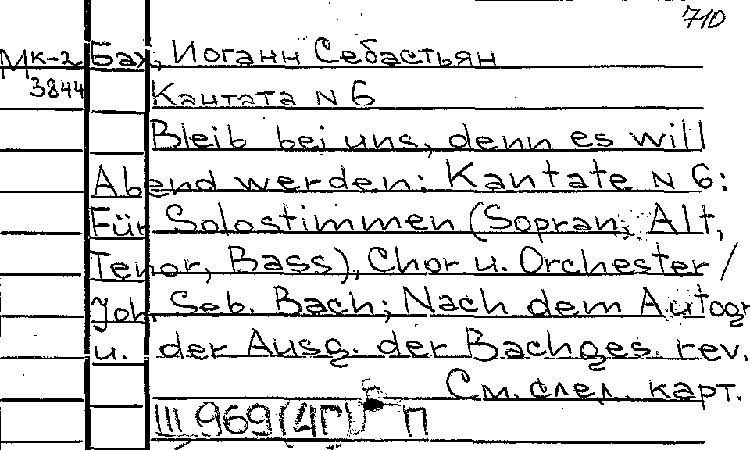 710
Мк-2 Бах, Иоганн Себастьян
3844
Кантата N 6
Bleib bei uns, denn es will
Abend werden: Kantate N 6:
Für Solostimmen (Sopran, Alt,
Tenor, Bass), Chor u. Orchester /
Joh. Seb. Bach; Nach dem Autogr
u. der Ausg. der Bachges. rev.
См. след. карт.
III 969 (4Г) П